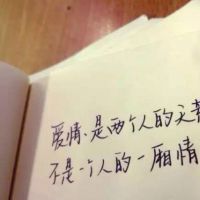 爱情、是两个人的
不是一个人的一厢情